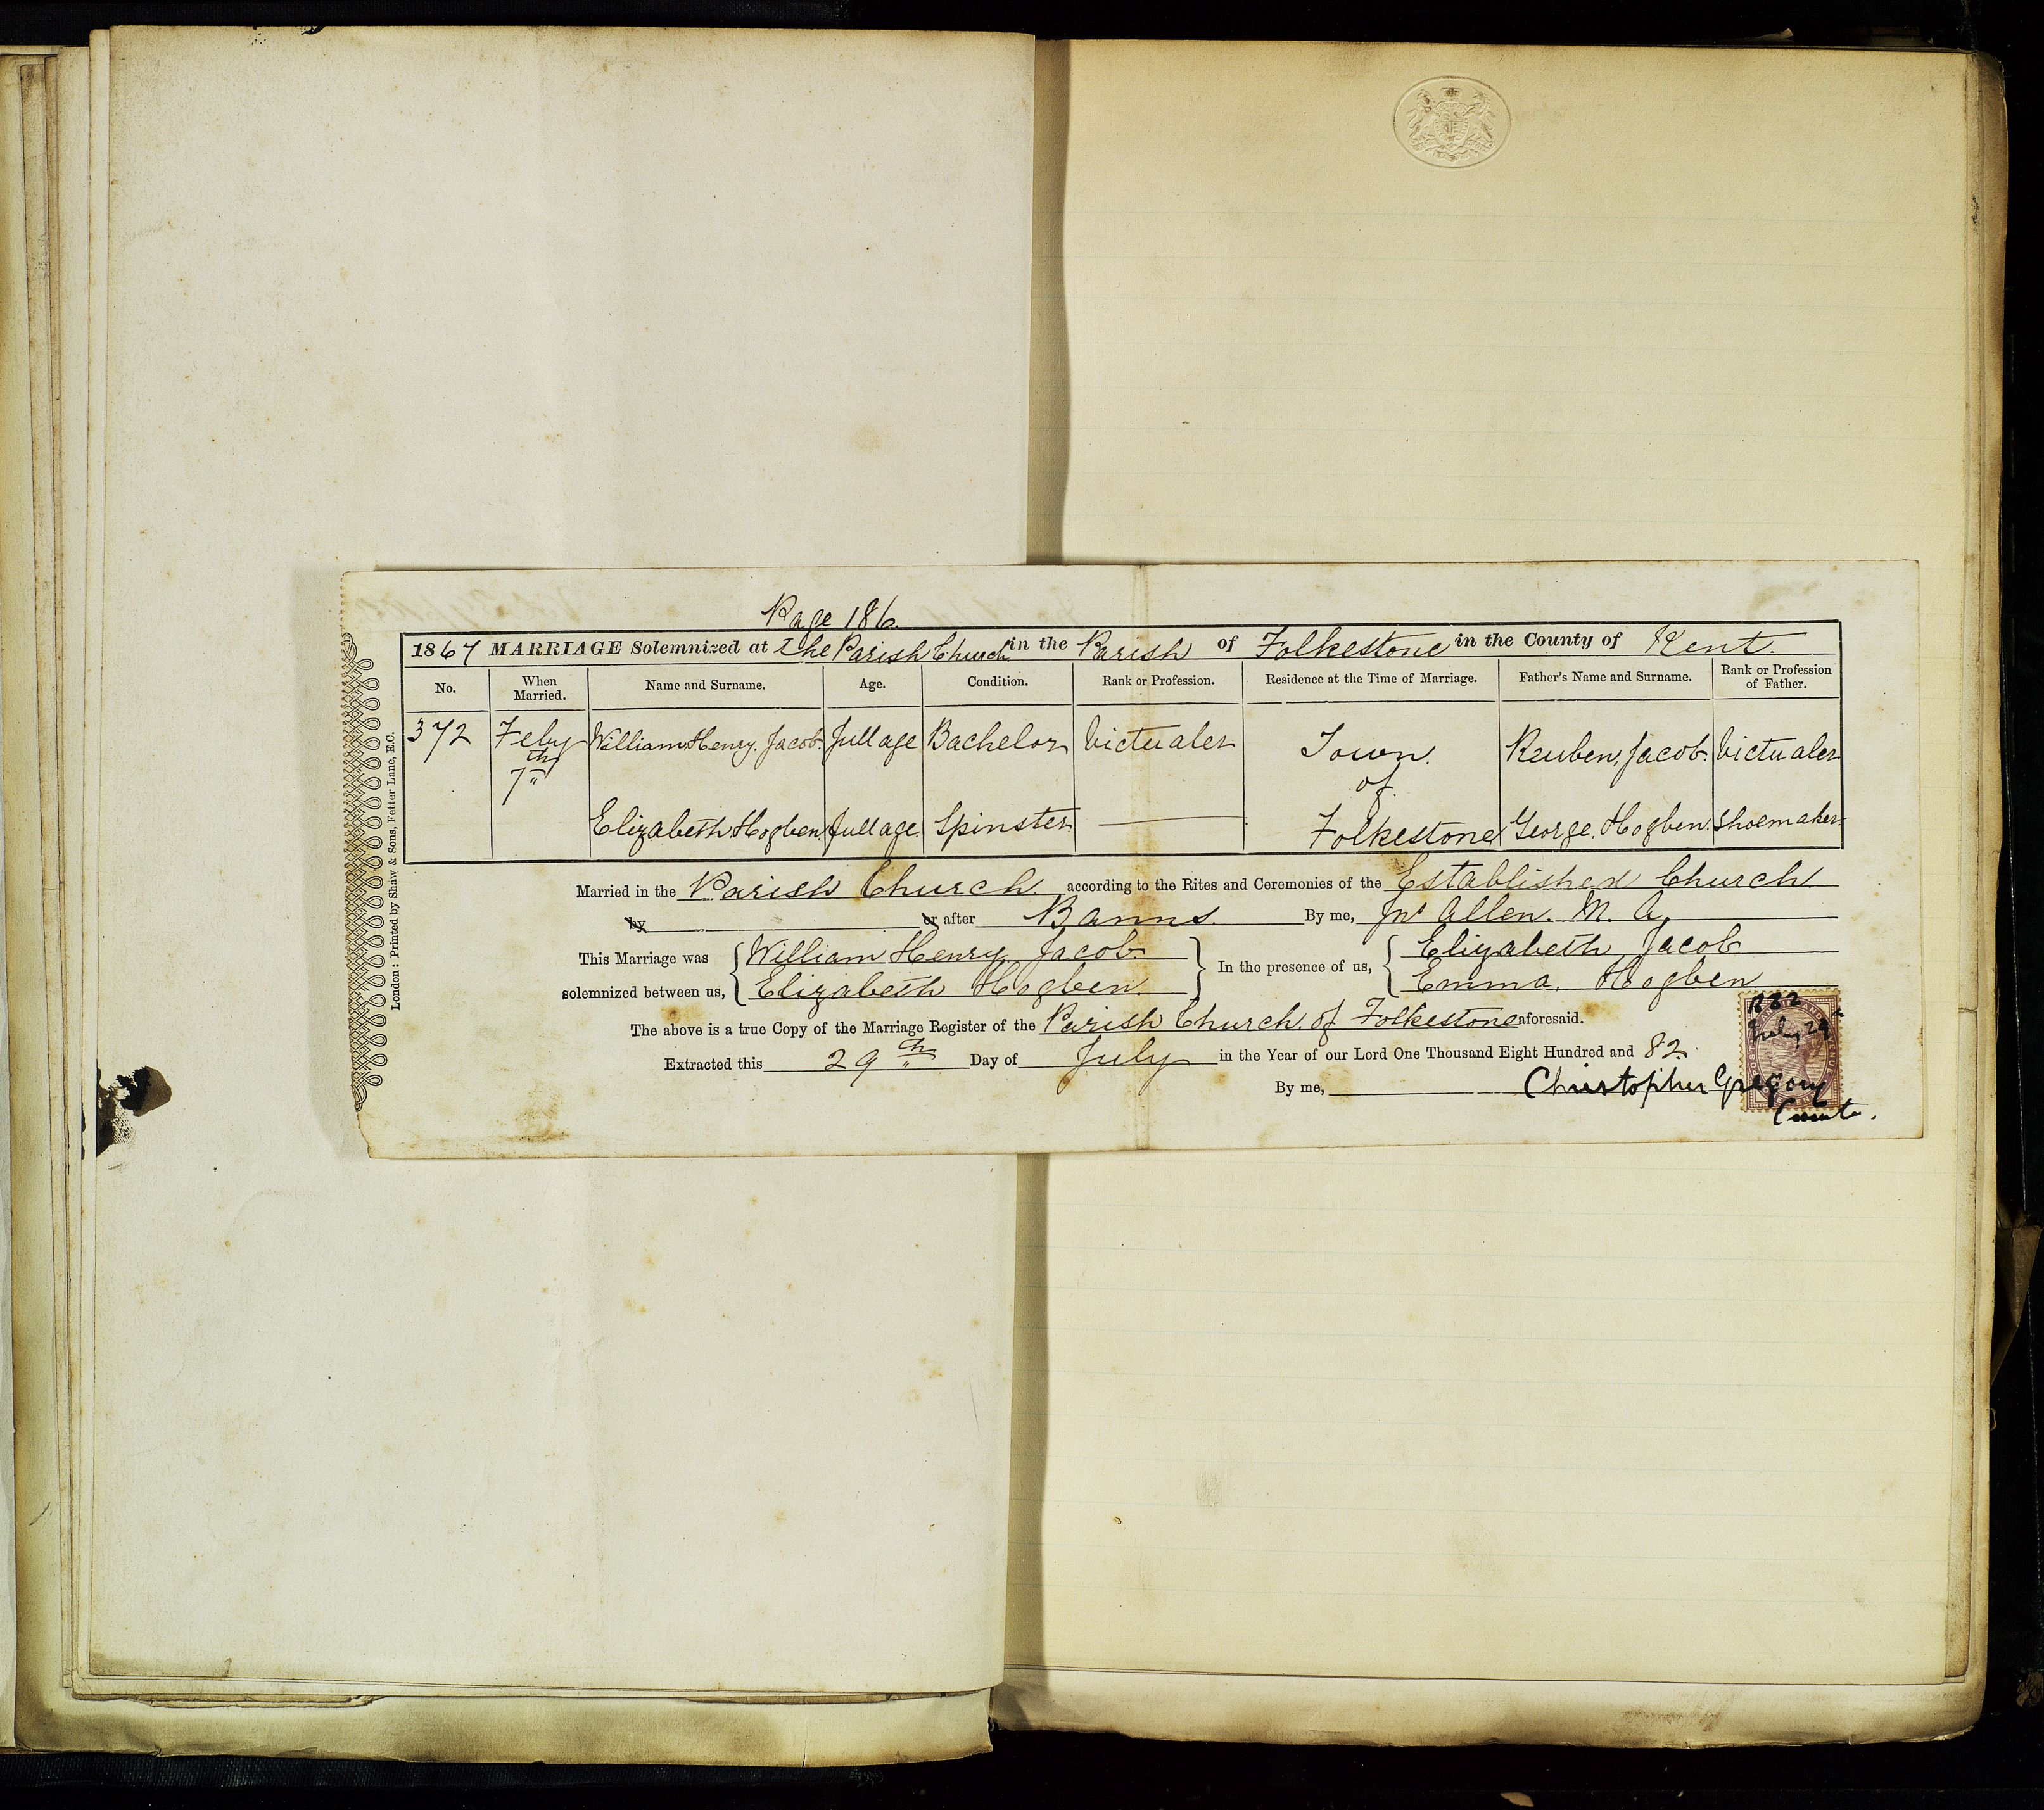 Page 186
1867 MARRIAGE Solemnized at The Parish Church in the Parish of Folkestone in the County of Kent.
No. When Married. Name and Surname. Age. Condition. Rank or Profession. Residence at the Time of Marriage. Father's Name and Surname. Rank or Profession of Father.
372 Feby 7th William Henry Jacob. full age Bachelor Victualer Town of Reuben Jacob. Victualer
Elizabeth Hogben full age. Spinster Folkestone George Hogben. Shoemaker.
Married in the Parish Church according to the Rites and Ceremonies of the Established Church.
by or after Banns. By me, Jno Allen. M. A.
This Marriage was solemnized between us, William Henry Jacob In the presence of us, Elizabeth Jacob
Elizabeth Hogben Emma. Hogben
The above is a true Copy of the Marriage Register of the Parish Church of Folkestone aforesaid.
Extracted this 29th Day of July in the Year of our Lord One Thousand Eight Hundred and 82.
By me, Christopher Gregory
Curate.
July 29
London: Printed by Shaw & Sons, Fetter Lane, E.C.